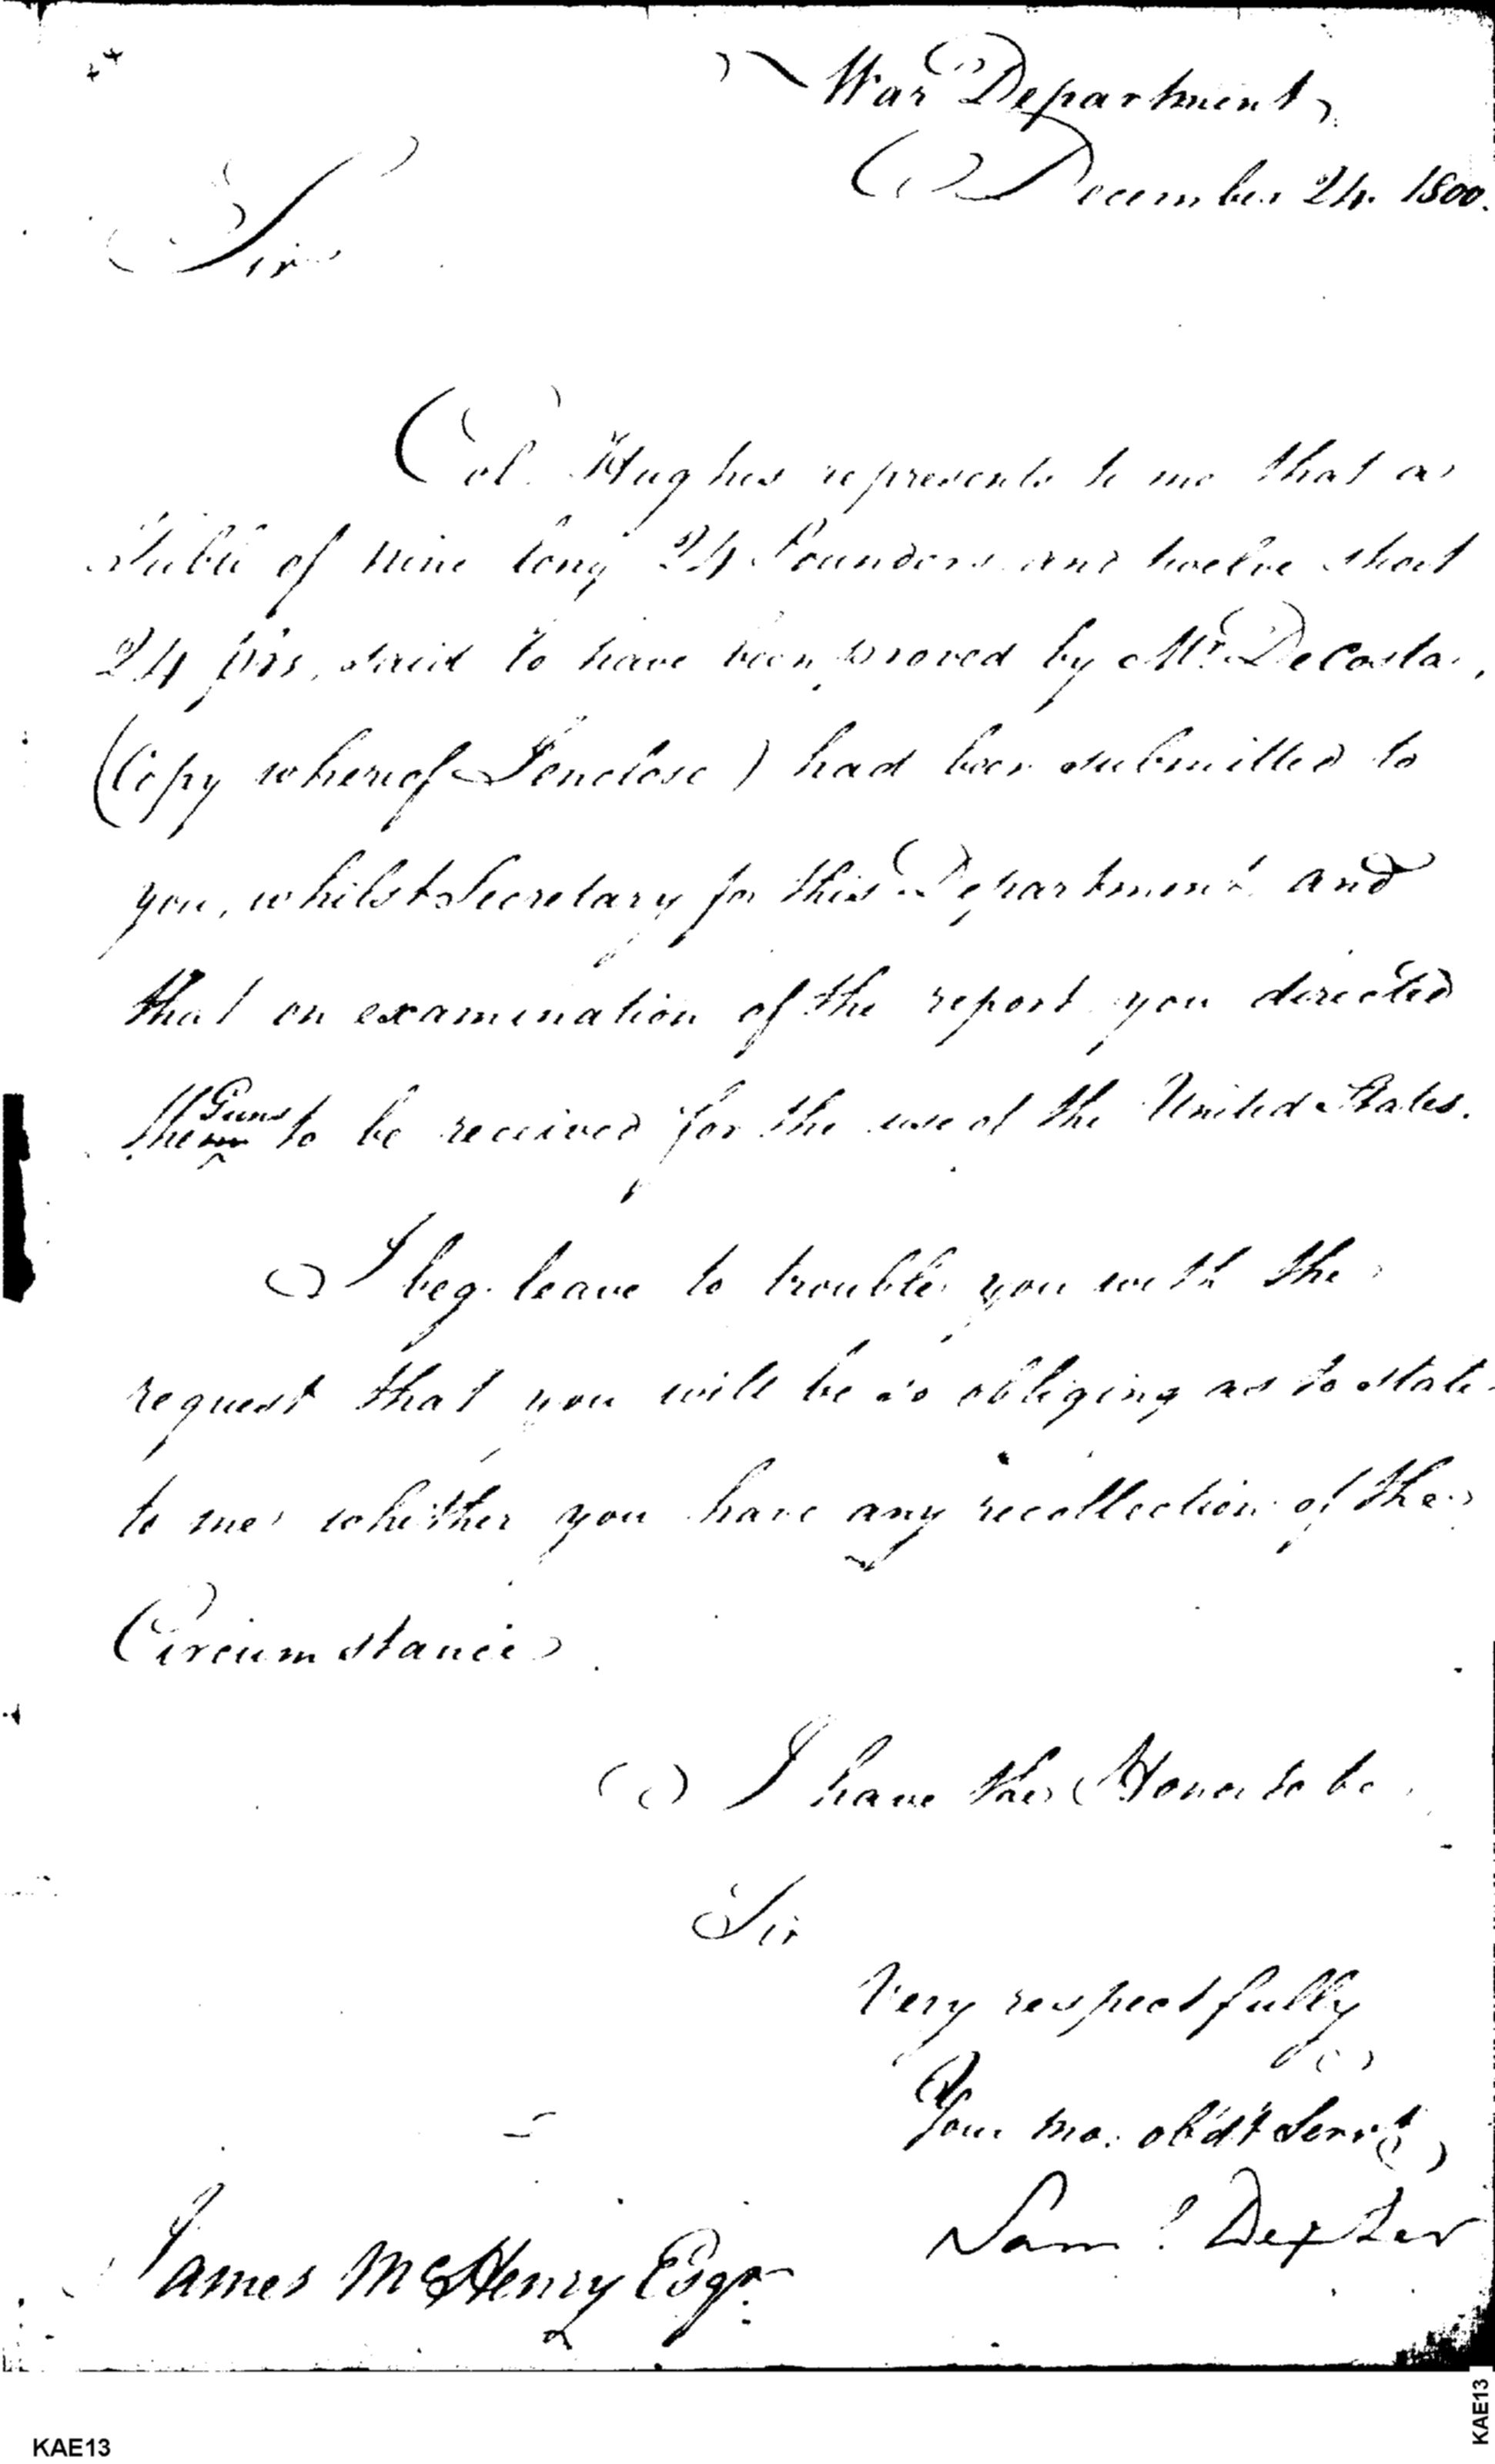 War Department
December 24. 1800.
Sir
Col. Hughes represents to me that a
table of nine long 24 Pounders and twelve short
24 prs, said to have been proved by Mr. DeCosta,
(Copy whereof I enclose) had been submitted to
you, whilst Secretary for this Department and
that on examination of the report you directed
Guns
them to be received for the use of the United States.
I beg leave to trouble you with the
request that you will be so obliging as to state
to me whether you have any recollection of the
Circumstance.
I have the Honor to be
Sir
Very respectfully
Your mo. obdt Servt
Saml Dexter
James McHenry Esqr.
KAE13
KAE13